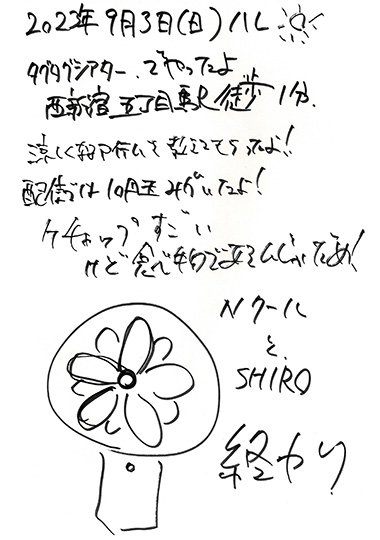 2023年9月3日(日)ハレ
タグタグシアター.でやったよ
西新宿五丁目駅徒歩1分.
涼しく 教えてもらったよ!!
配信では10円玉みがいたよ!
ケチャップすごい
けど食べ物であそんじゃだめ!
Nクール
と.
SHIRO
終わり